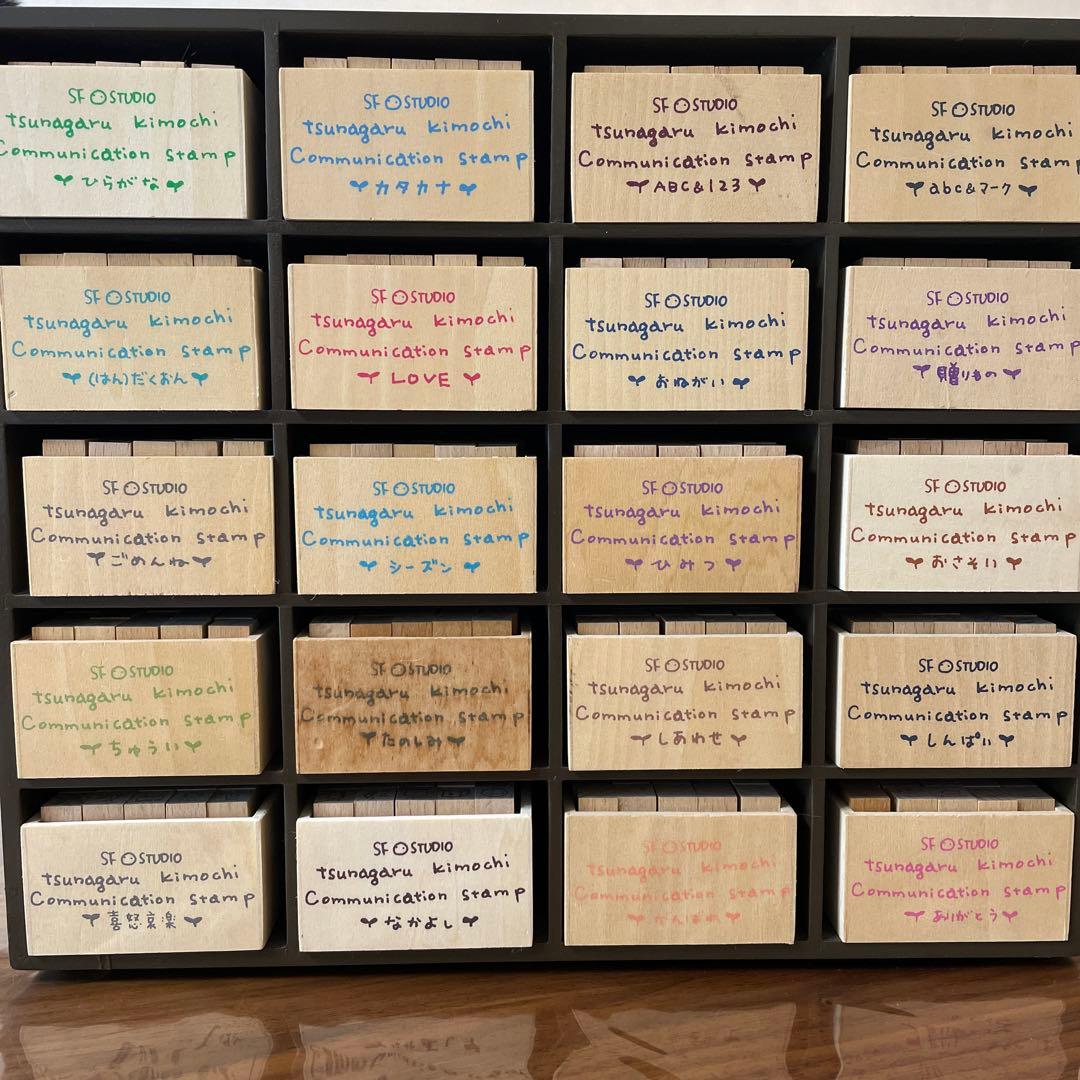 SF STUDIO
tsunagaru kimochi
Communication stamp
ひらがな
SF STUDIO
tsunagaru kimochi
Communication stamp
カタカナ
SF STUDIO
tsunagaru kimochi
Communication stamp
ABC&123
SF STUDIO
tsunagaru kimochi
Communication stamp
abc&マーク
SF STUDIO
tsunagaru kimochi
Communication stamp
(はん)だくおん
SF STUDIO
tsunagaru kimochi
Communication stamp
LOVE
SF STUDIO
tsunagaru kimochi
Communication stamp
おねがい
SF STUDIO
tsunagaru kimochi
Communication stamp
贈りもの
SF STUDIO
tsunagaru kimochi
Communication stamp
ごめんね
SF STUDIO
tsunagaru kimochi
Communication stamp
シーズン
SF STUDIO
tsunagaru kimochi
Communication stamp
ひみつ
SF STUDIO
tsunagaru kimochi
Communication stamp
おさそい
SF STUDIO
tsunagaru kimochi
Communication stamp
ちゅうい
SF STUDIO
tsunagaru kimochi
Communication stamp
たのしみ
SF STUDIO
tsunagaru kimochi
Communication stamp
しあわせ
SF STUDIO
tsunagaru kimochi
Communication stamp
しんぱい
SF STUDIO
tsunagaru kimochi
Communication stamp
喜怒哀楽
SF STUDIO
tsunagaru kimochi
Communication stamp
なかよし
SF STUDIO
tsunagaru kimochi
Communication stamp
がんばれ
SF STUDIO
tsunagaru kimochi
Communication stamp
ありがとう